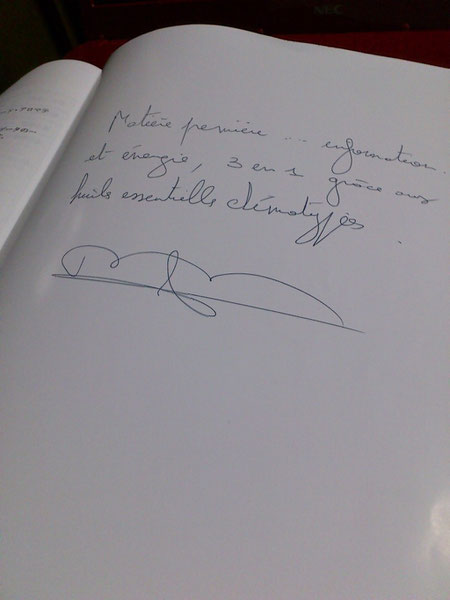 NEC
Matière première ... information
et énergie, 3 en 1 grâce aux
huiles essentielles chémotypées.